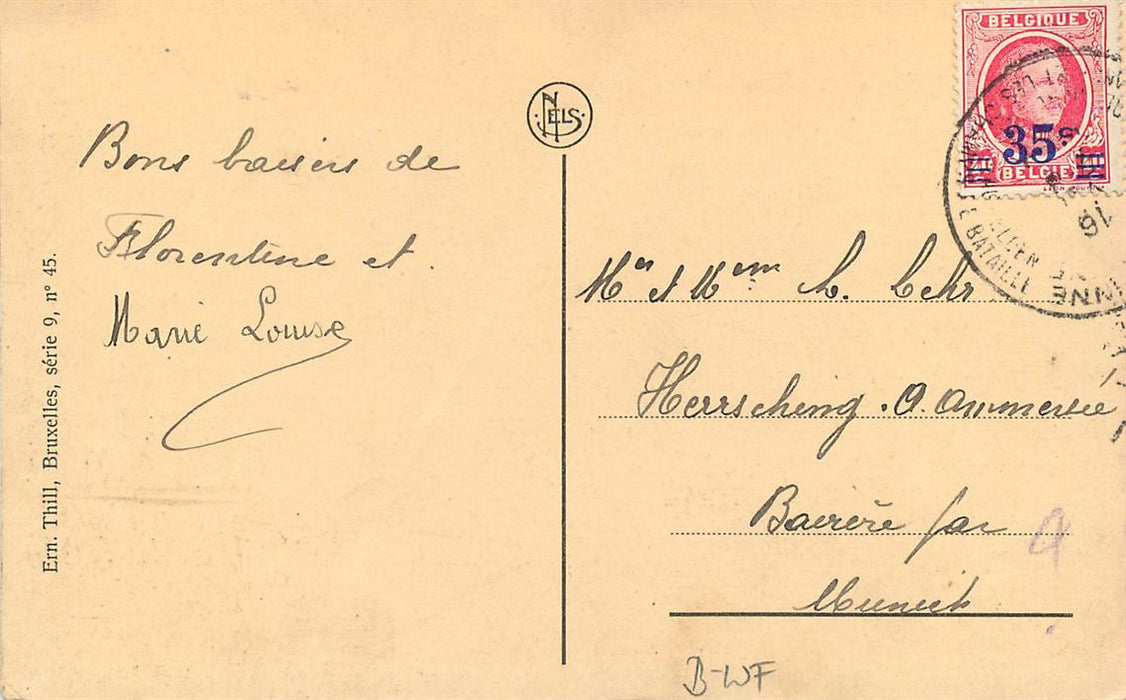 Bons baisers de
Florentine et
Marie Louise
Ern. Thill, Bruxelles, série 9, n° 45.
NELS
BELGIQUE
35c
BELGIE
16
BATAILL
Mr et Mem L. Lehr
Herrsching . A. Ammersee
Bavière par
Munich
B-WF